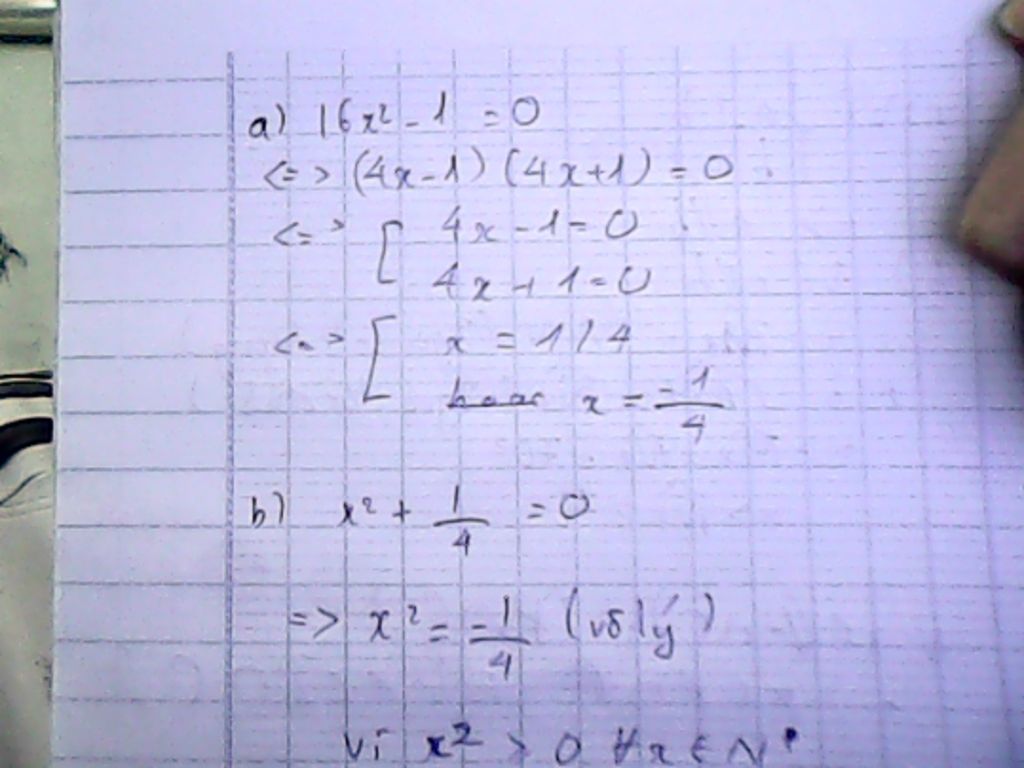 a) 16x² - 1 = 0
<=> (4x-1) (4x+1) = 0
<=> [ 4x - 1 = 0
4x + 1 = 0
<=> [ x = 1/4
x = -1/4
b) x² + 1/4 = 0
=> x² = -1/4 (vô lý)
Vì x² > 0 ∀x ∈ N*